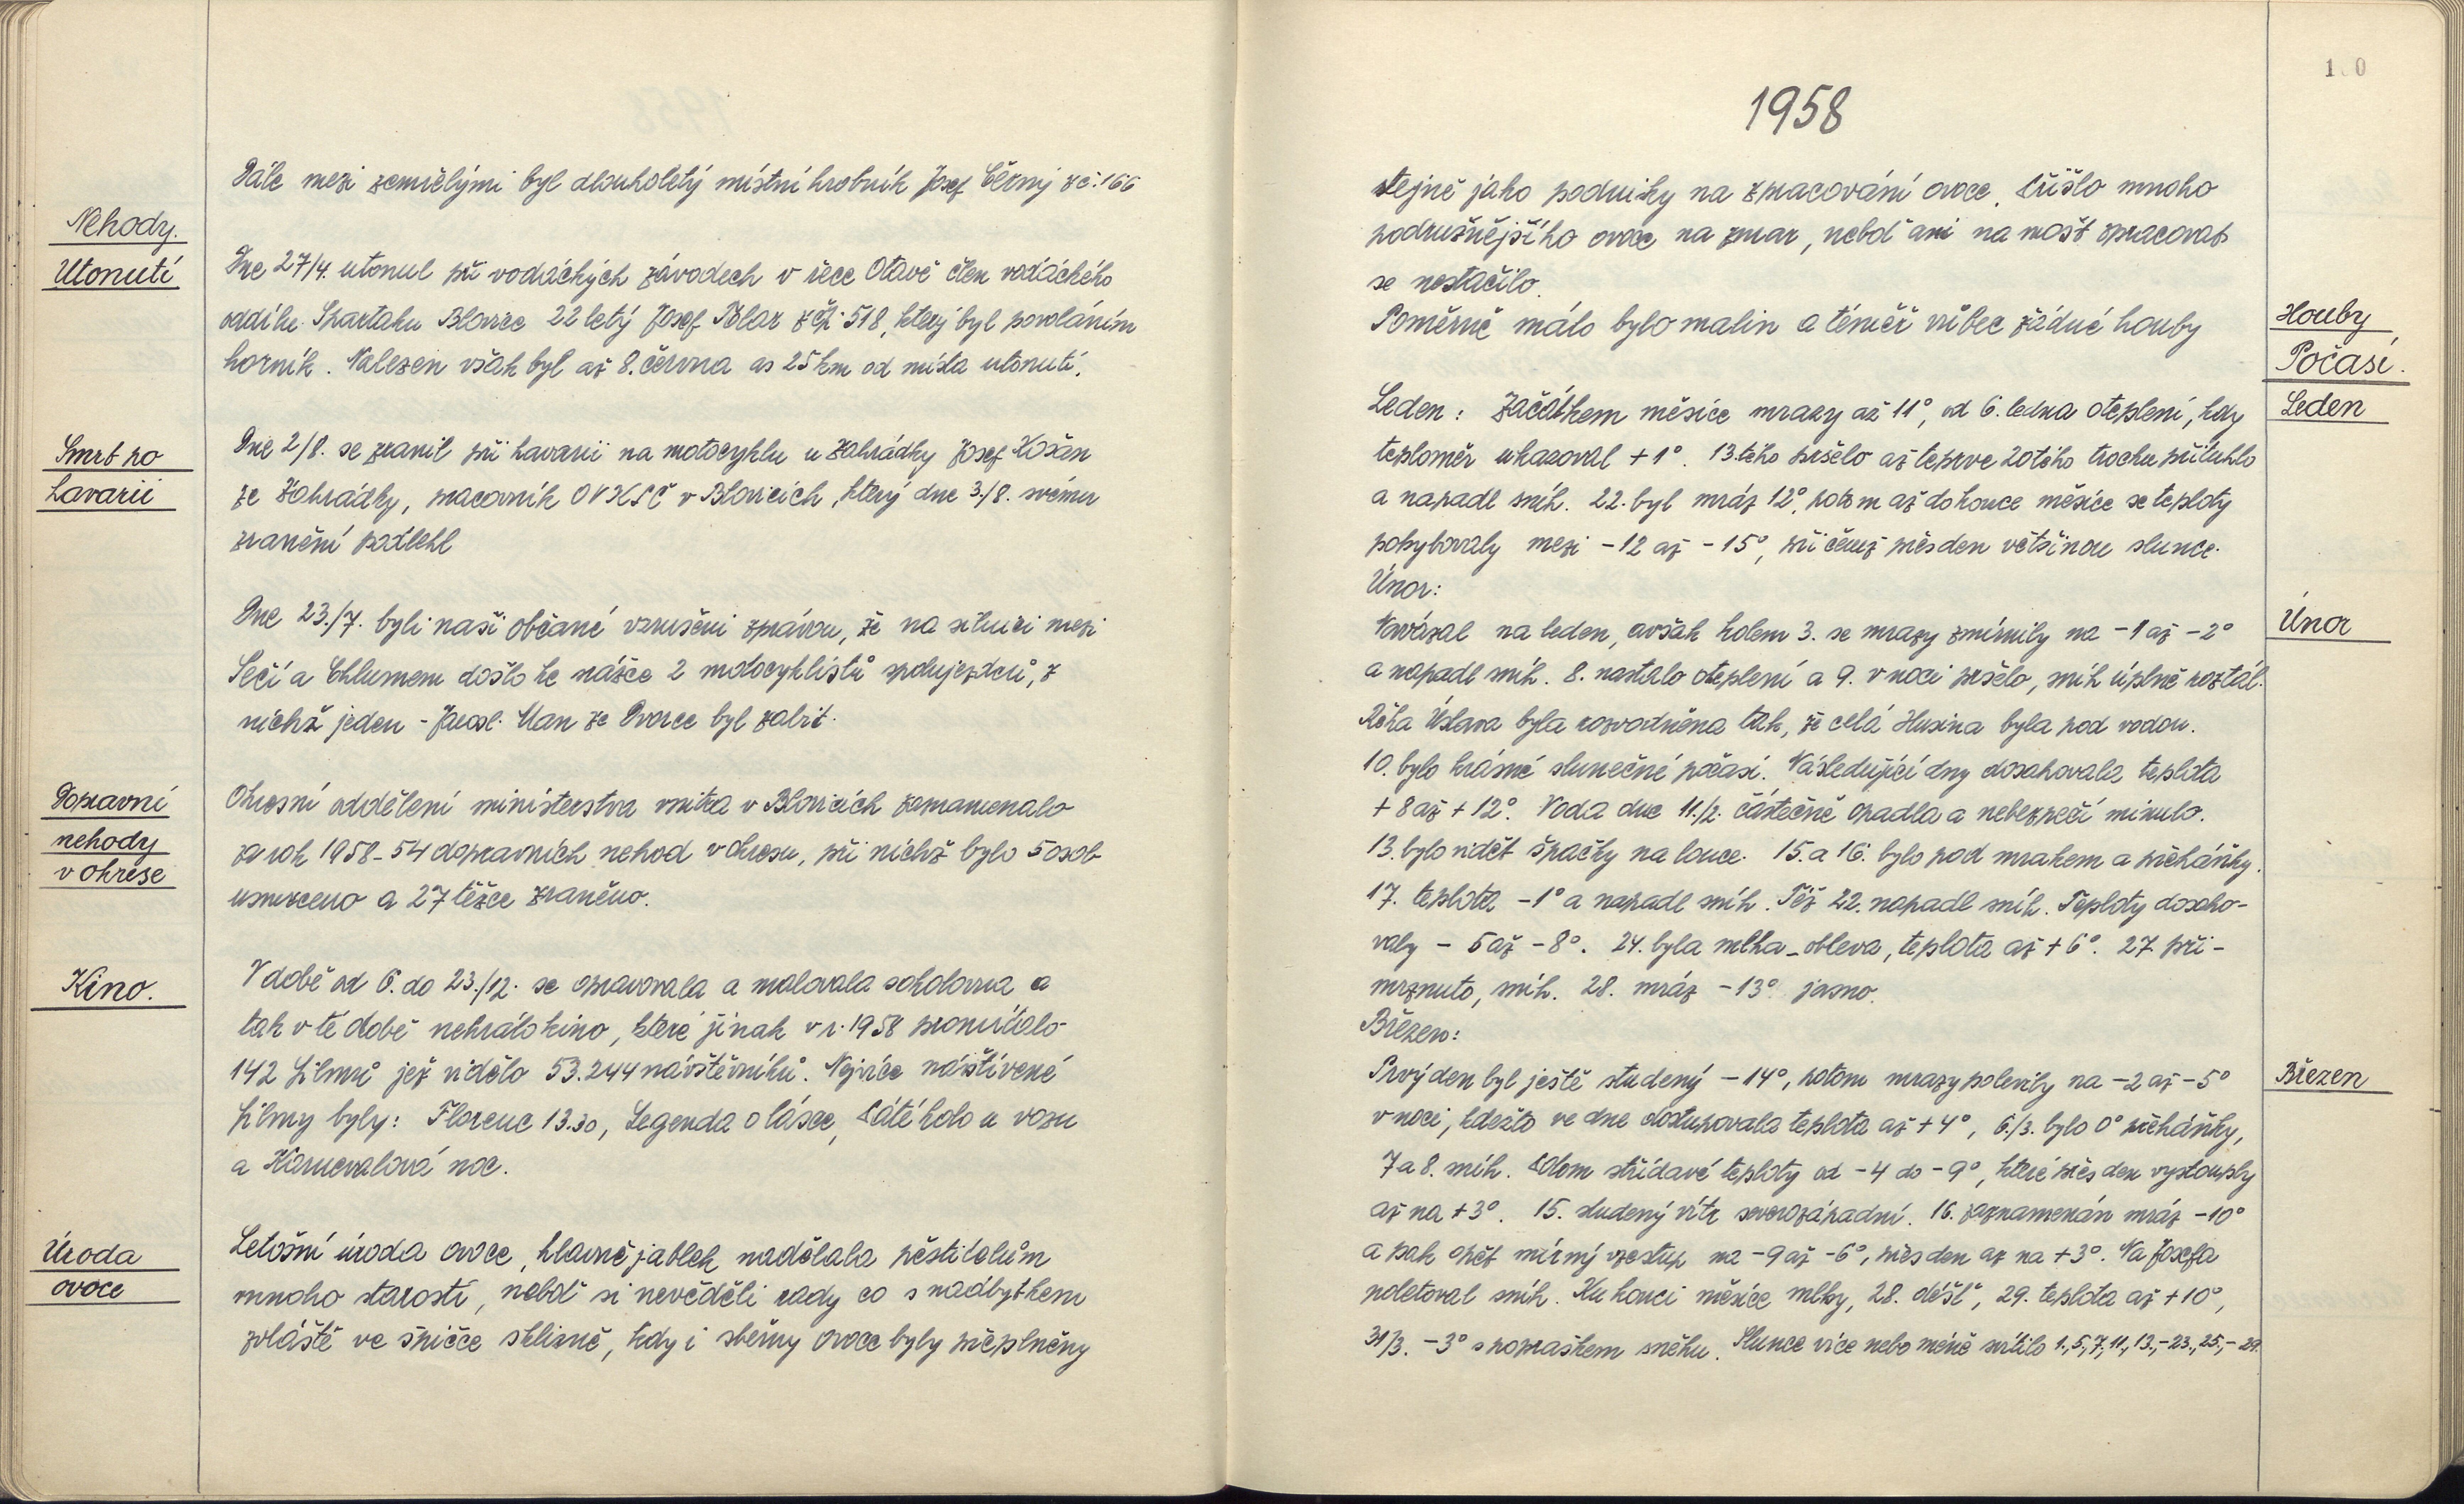 Dále mezi zemřelými byl dlouholetý místní hrobník Josef Černý z č. 166
Nehody.
Utonutí
Dne 27/4. utonul při vodáckých závodech v řece Otavě člen vodáckého
oddílu Spartaku Blovice 22 letý Josef Pólar z čp. 518, který byl povoláním
horník. Nalezen však byl až 8. června as 25 km od místa utonutí.
Smrt po
havarii
Dne 2/8. se zranil při havarii na motocyklu u Zahrádky Josef Košan
ze Zahrádky, pracovník OV KSČ v Blovicích, který dne 3./8. svému
zranění podlehl
Dne 23./7. byli naši občané vzrušeni zprávou, že na silnici mezi
Sečí a Chlumem došlo ke srážce 2 motocyklistů spolujezdců, z
nichž jeden - Jarosl. Man ze Dvorce byl zabit.
Dopravní
nehody
v okrese
Okresní oddělení ministerstva vnitra v Blovicích zaznamenalo
za rok 1958 - 54 dopravních nehod v okresu, při nichž bylo 5 osob
usmrceno a 27 těžce zraněno.
Kino.
V době od 6. do 23./12. se opravovala a malovala sokolovna a
tak v té době nehrálo kino, které jinak v r. 1958 promítalo
142 filmů jež vidělo 53.244 návštěvníků. Nejvíce navštívené
filmy byly: Florenc 13.30, Legenda o lásce, Páté kolo u vozu
a Karnevalová noc.
Úroda
ovoce
Letošní úroda ovoce, hlavně jablek nadělala pěstitelům
mnoho starostí, neboť si nevěděli rady co s nadbytkem
zvláště ve špičce sklizně, kdy i sběrny ovoce byly přeplněny
1 0
1958
stejně jako podniky na zpracování ovoce. Přišlo mnoho
podružnějšího ovoce na zmar, neboť ani na mošt zpracovat
se nestačilo.
Houby
Poměrně málo bylo malin a téměř vůbec žádné houby
Počasí.
Leden
Leden: Začátkem měsíce mrazy až 11°, od 6. ledna oteplení, kdy
teploměr ukazoval +1°. 13.tého pršelo až teprve 20tého trochu přituhlo
a napadl sníh. 22. byl mráz 12°, potom až do konce měsíce se teploty
pohybovaly mezi -12 až -15°, při čemž přes den většinou slunce.
Únor:
Únor
Navázal na leden, avšak kolem 3. se mrazy zmírnily na -1 až -2°
a napadl sníh. 8. nastalo oteplení a 9. v noci pršelo, sníh úplně roztál.
Řeka Úslava byla rozvodněna tak, že celá Husina byla pod vodou.
10. bylo krásné slunečné počasí. Následující dny dosahovala teplota
+8 až +12°. Voda dne 11./2. částečně opadla a nebezpečí minulo.
13. bylo vidět špačky na louce. 15. a 16. bylo pod mrakem a přeháňky.
17. teplota -1° a napadl sníh. Též 22. napadl sníh. Teploty dosaho-
valy - 5 až -8°. 24. byla mlha - obleva, teplota až +6°. 27. při-
mrznuto, sníh. 28. mráz -13° jasno.
Březen:
Březen
Prvý den byl ještě studený -14°, potom mrazy polevily na -2 až -5°
v noci, kdežto ve dne dostupovala teplota až +4°, 6./3. bylo 0° přeháňky,
7 a 8. sníh. Potom střídavé teploty od -4 do -9°, které přes den vystouply
až na +3°. 15. studený vítr severozápadní. 16. zaznamenán mráz -10°
a pak opět mírný vzestup na -9 až -6°, přes den až na +3°. Na Josefa
poletoval sníh. Ku konci měsíce mlhy, 28. déšť, 29. teplota až +10°,
31/3. -3° s popraškem sněhu. Slunce více nebo méně svítilo 1., 5., 7., 11., 13., - 23., 25., - 29.